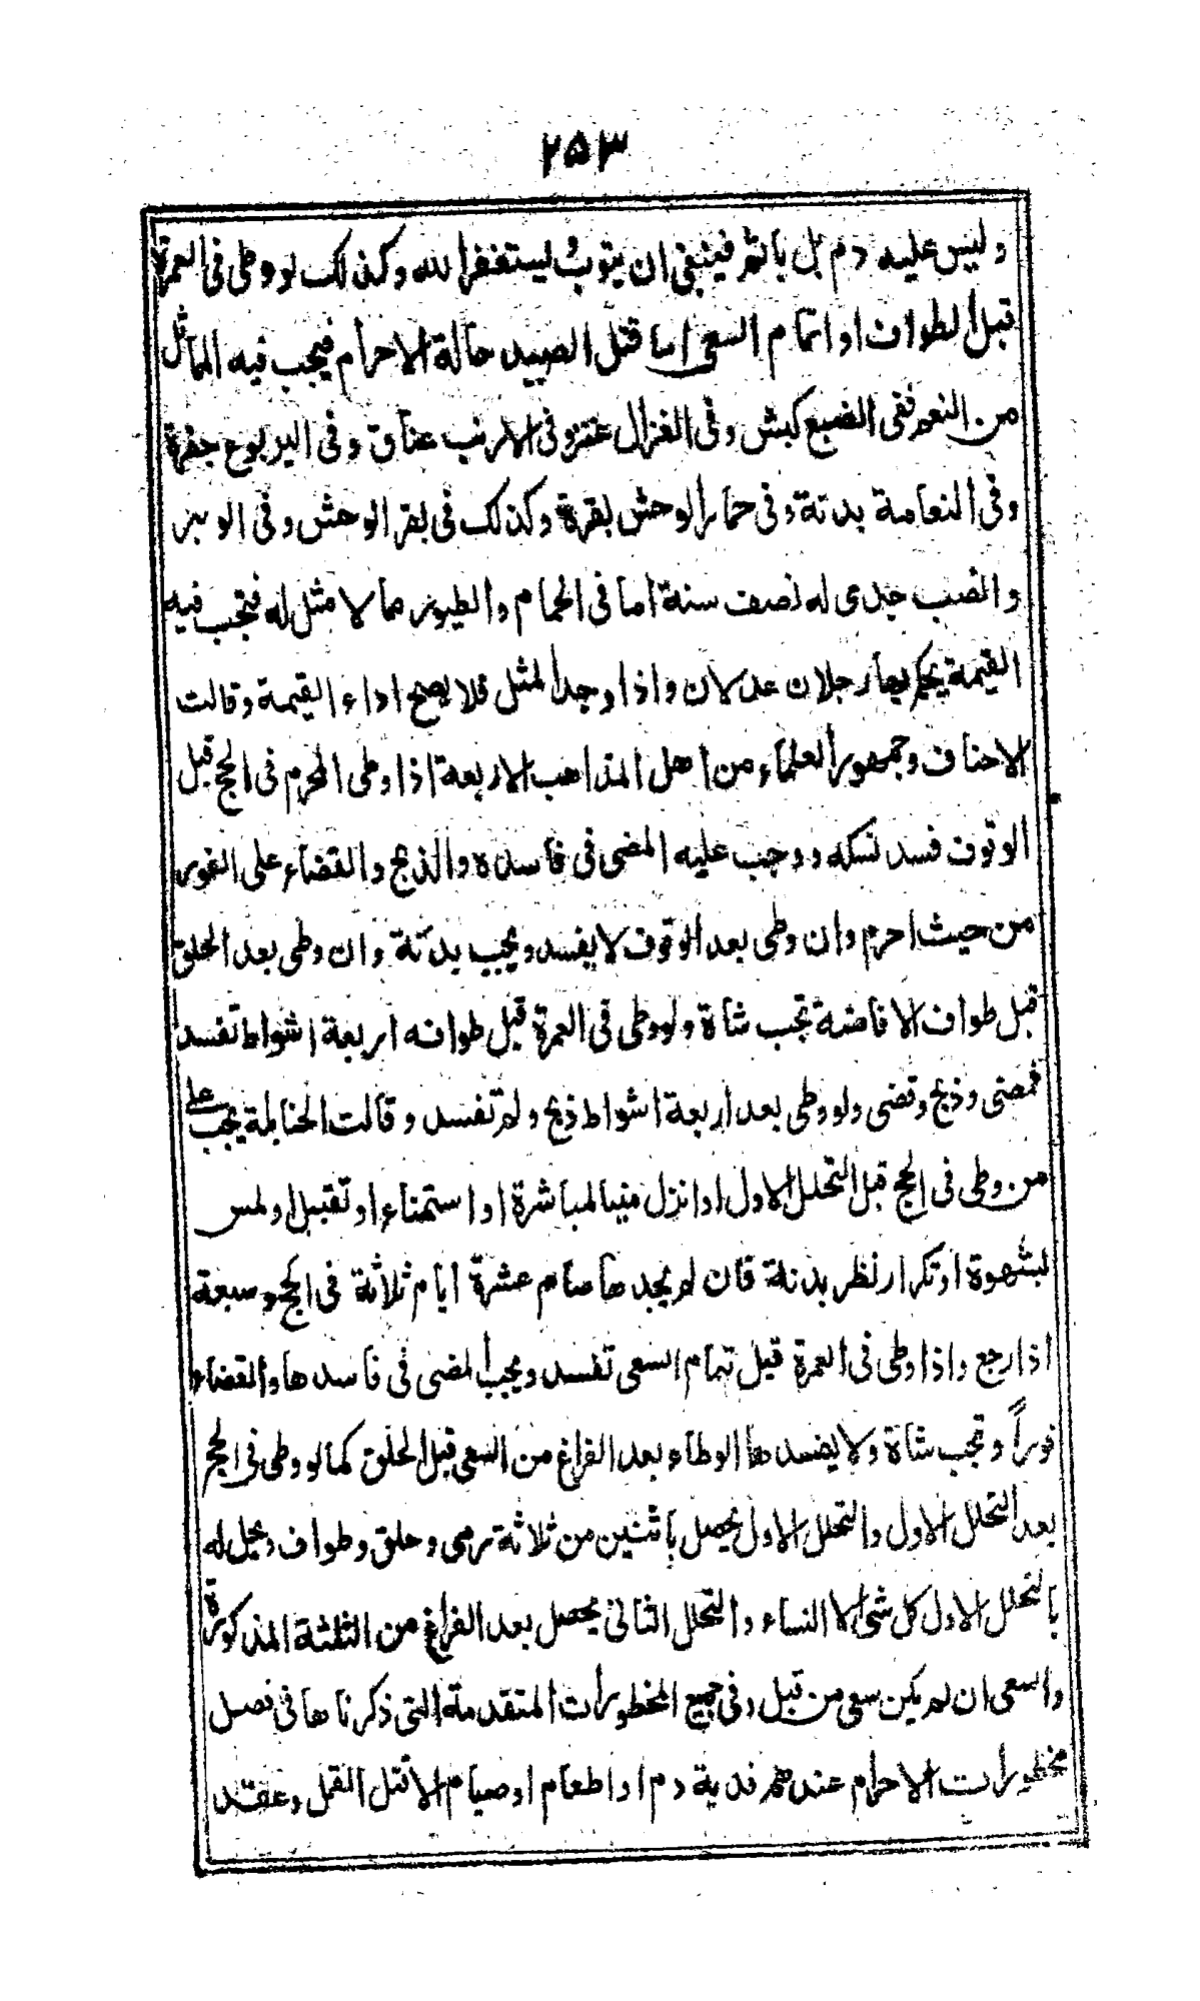 ۲۵۳
وليس عليه دم بل ياثم فينبغى ان يتوب و ليستغفر الله وكذلك لو وطى فى العمرة
قبل الطواف او اتمام السعى اما قتل الصيد حالة الاحرام فيجب فيه المماثل
من النعم ففى الضبع كبش وفى الغزال عنز وفى الارنب عناق وفى اليربوع جفرة
وفى النعامة بدنة وفى حمار الوحش بقرة وكذلك فى بقر الوحش وفى الوبر
والضب جدى له نصف سنة اما فى الحمام والطيور مما لا مثل له فتجب فيه
القيمة يحكم بها رجلان عدلان واذا وجد المثل فلا يصح اداء القيمة وقالت
الاحناف وجمهور العلماء من اهل المذاهب الاربعة اذا وطى المحرم فى الحج قبل
الوقوف فسد نسكه ووجب عليه المضى فى فاسده والذبح والقضاء على الفور
من حيث احرم وان وطى بعد الوقوف لا يفسد ويجب بدنة وان وطى بعد الحلق
قبل طواف الافاضة تجب شاة ولو وطى فى العمرة قبل طوافه اربعة اشواط تفسد
فمضى وذبح وقضى ولو وطى بعد اربعة اشواط ذبح ولم تفسد وقالت الحنابلة يجب على
من وطى فى الحج قبل التحلل الاول او انزل منيا لمباشرة او استمناء او تقبيل او لمس
لشهوة او تكرار نظر بدنة فان لم يجدها صام عشرة ايام ثلاثة فى الحج وسبعة
اذا رجع واذا وطى فى العمرة قبل تمام السعى تفسد ويجب المضى فى فاسدها والقضاء
فوراً وتجب شاة ولا يفسدها الوطاء بعد الفراغ من السعى قبل الحلق كما لو وطى فى الحج
بعد التحلل الاول والتحلل الاول يحصل باثنين من ثلاثة رمى وحلق وطواف ويحل له
بالتحلل الاول كل شى الا النساء والتحلل الثانى يحصل بعد الفراغ من الثلثة المذكورة
والسعى ان لم يكن سعى من قبل وفى جميع المخطورات المتقدمة التى ذكرناها فى فصل
مخطورات الاحرام عندهم فدية دم او اطعام او صيام الا قتل القمل وعقد